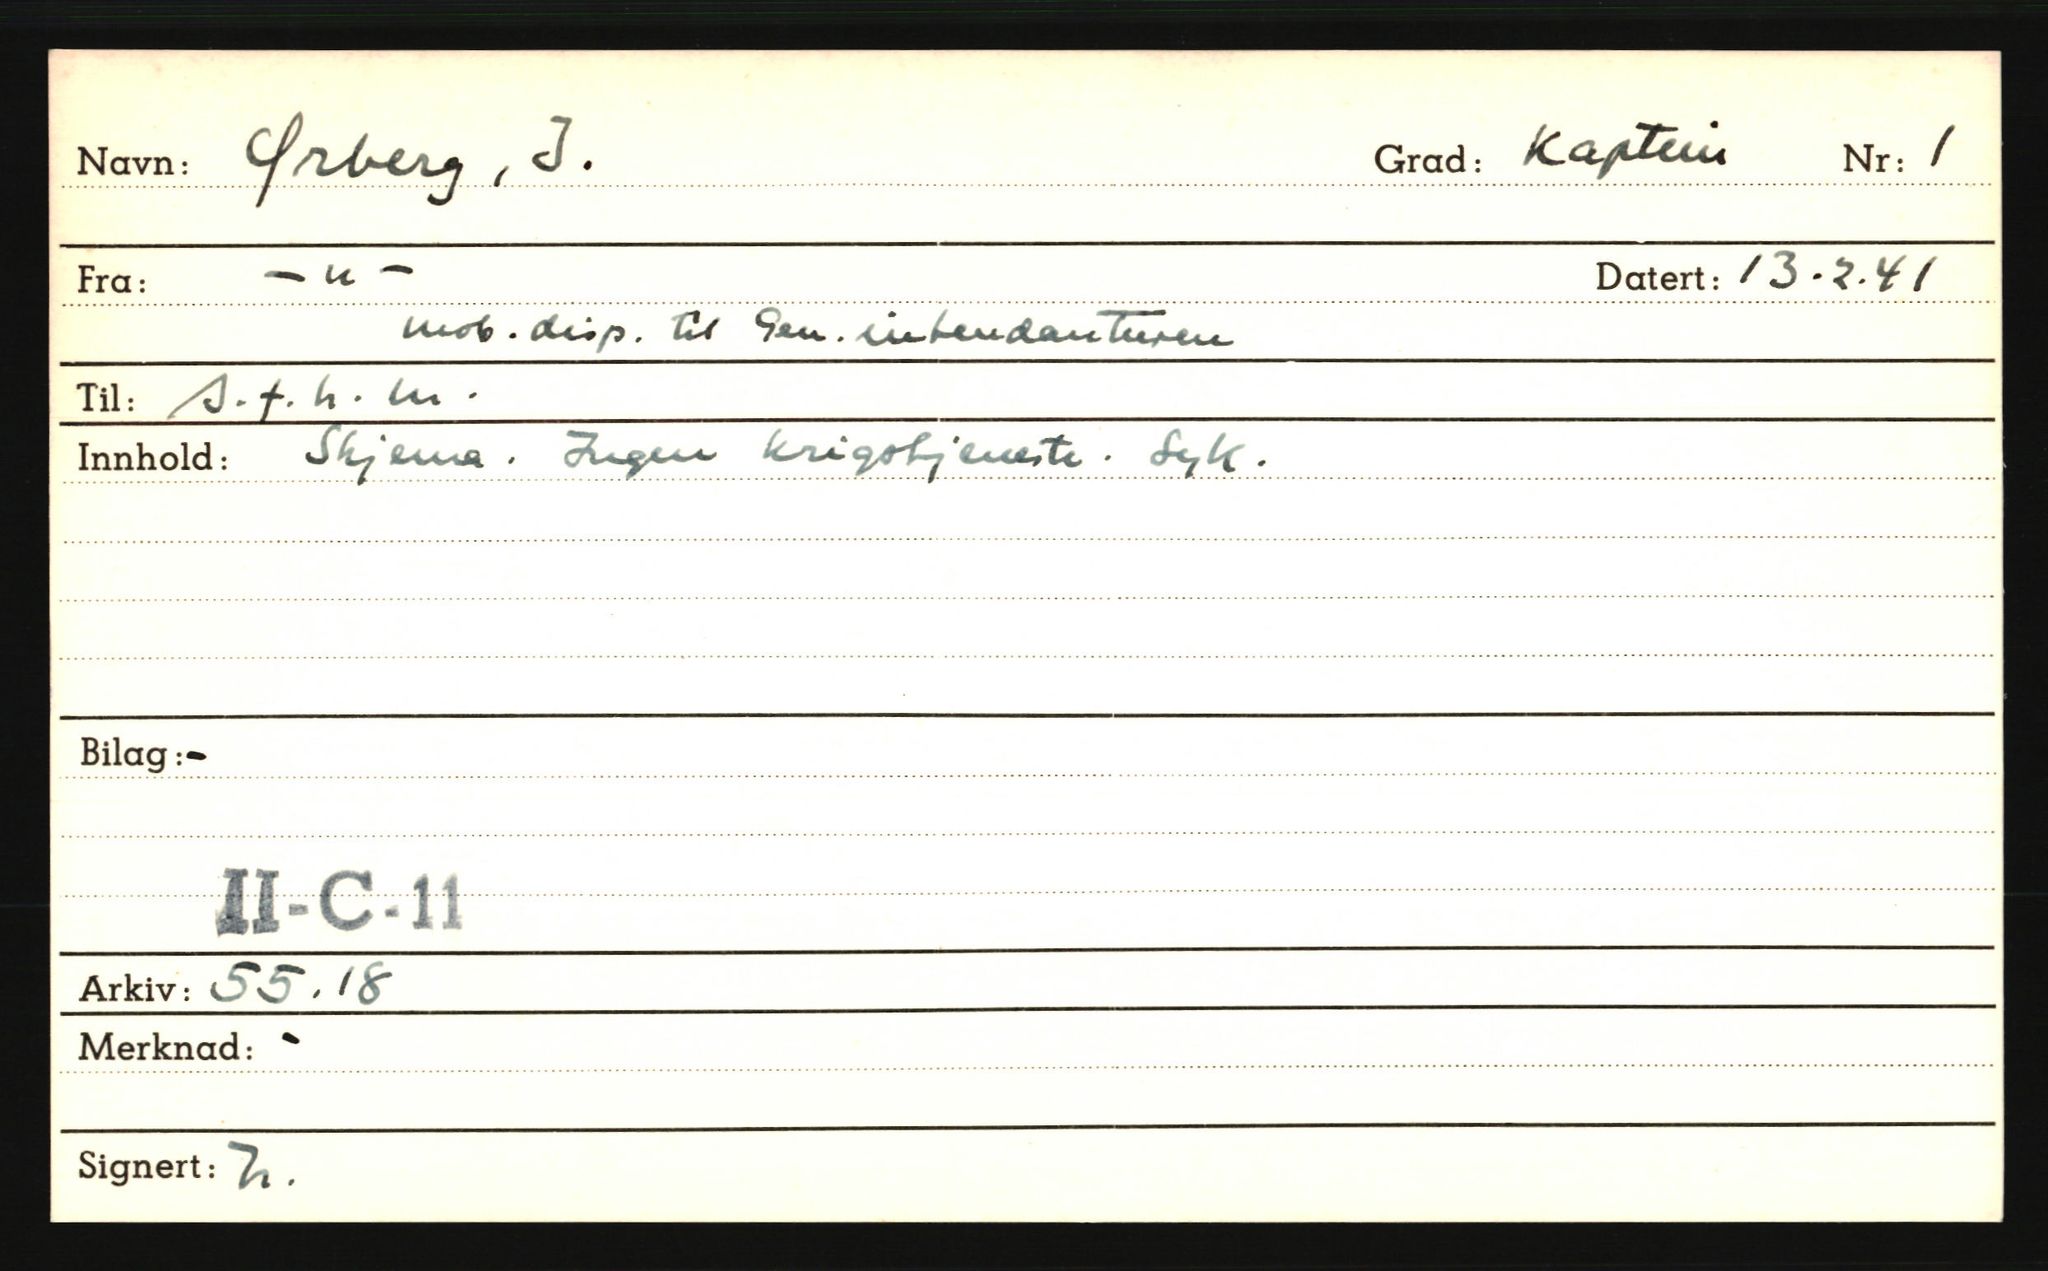 Navn: Ørberg, I. Grad: Kaptein Nr: 1
Fra: -"- Datert: 13.2.41
mob. disp. til Gen. intendanturen
Til: S.f.h.m.
Innhold: Skjema. Ingen krigstjeneste. Syk.
Bilag: -
II-C-11
Arkiv: 55.18
Merknad: -
Signert: h.